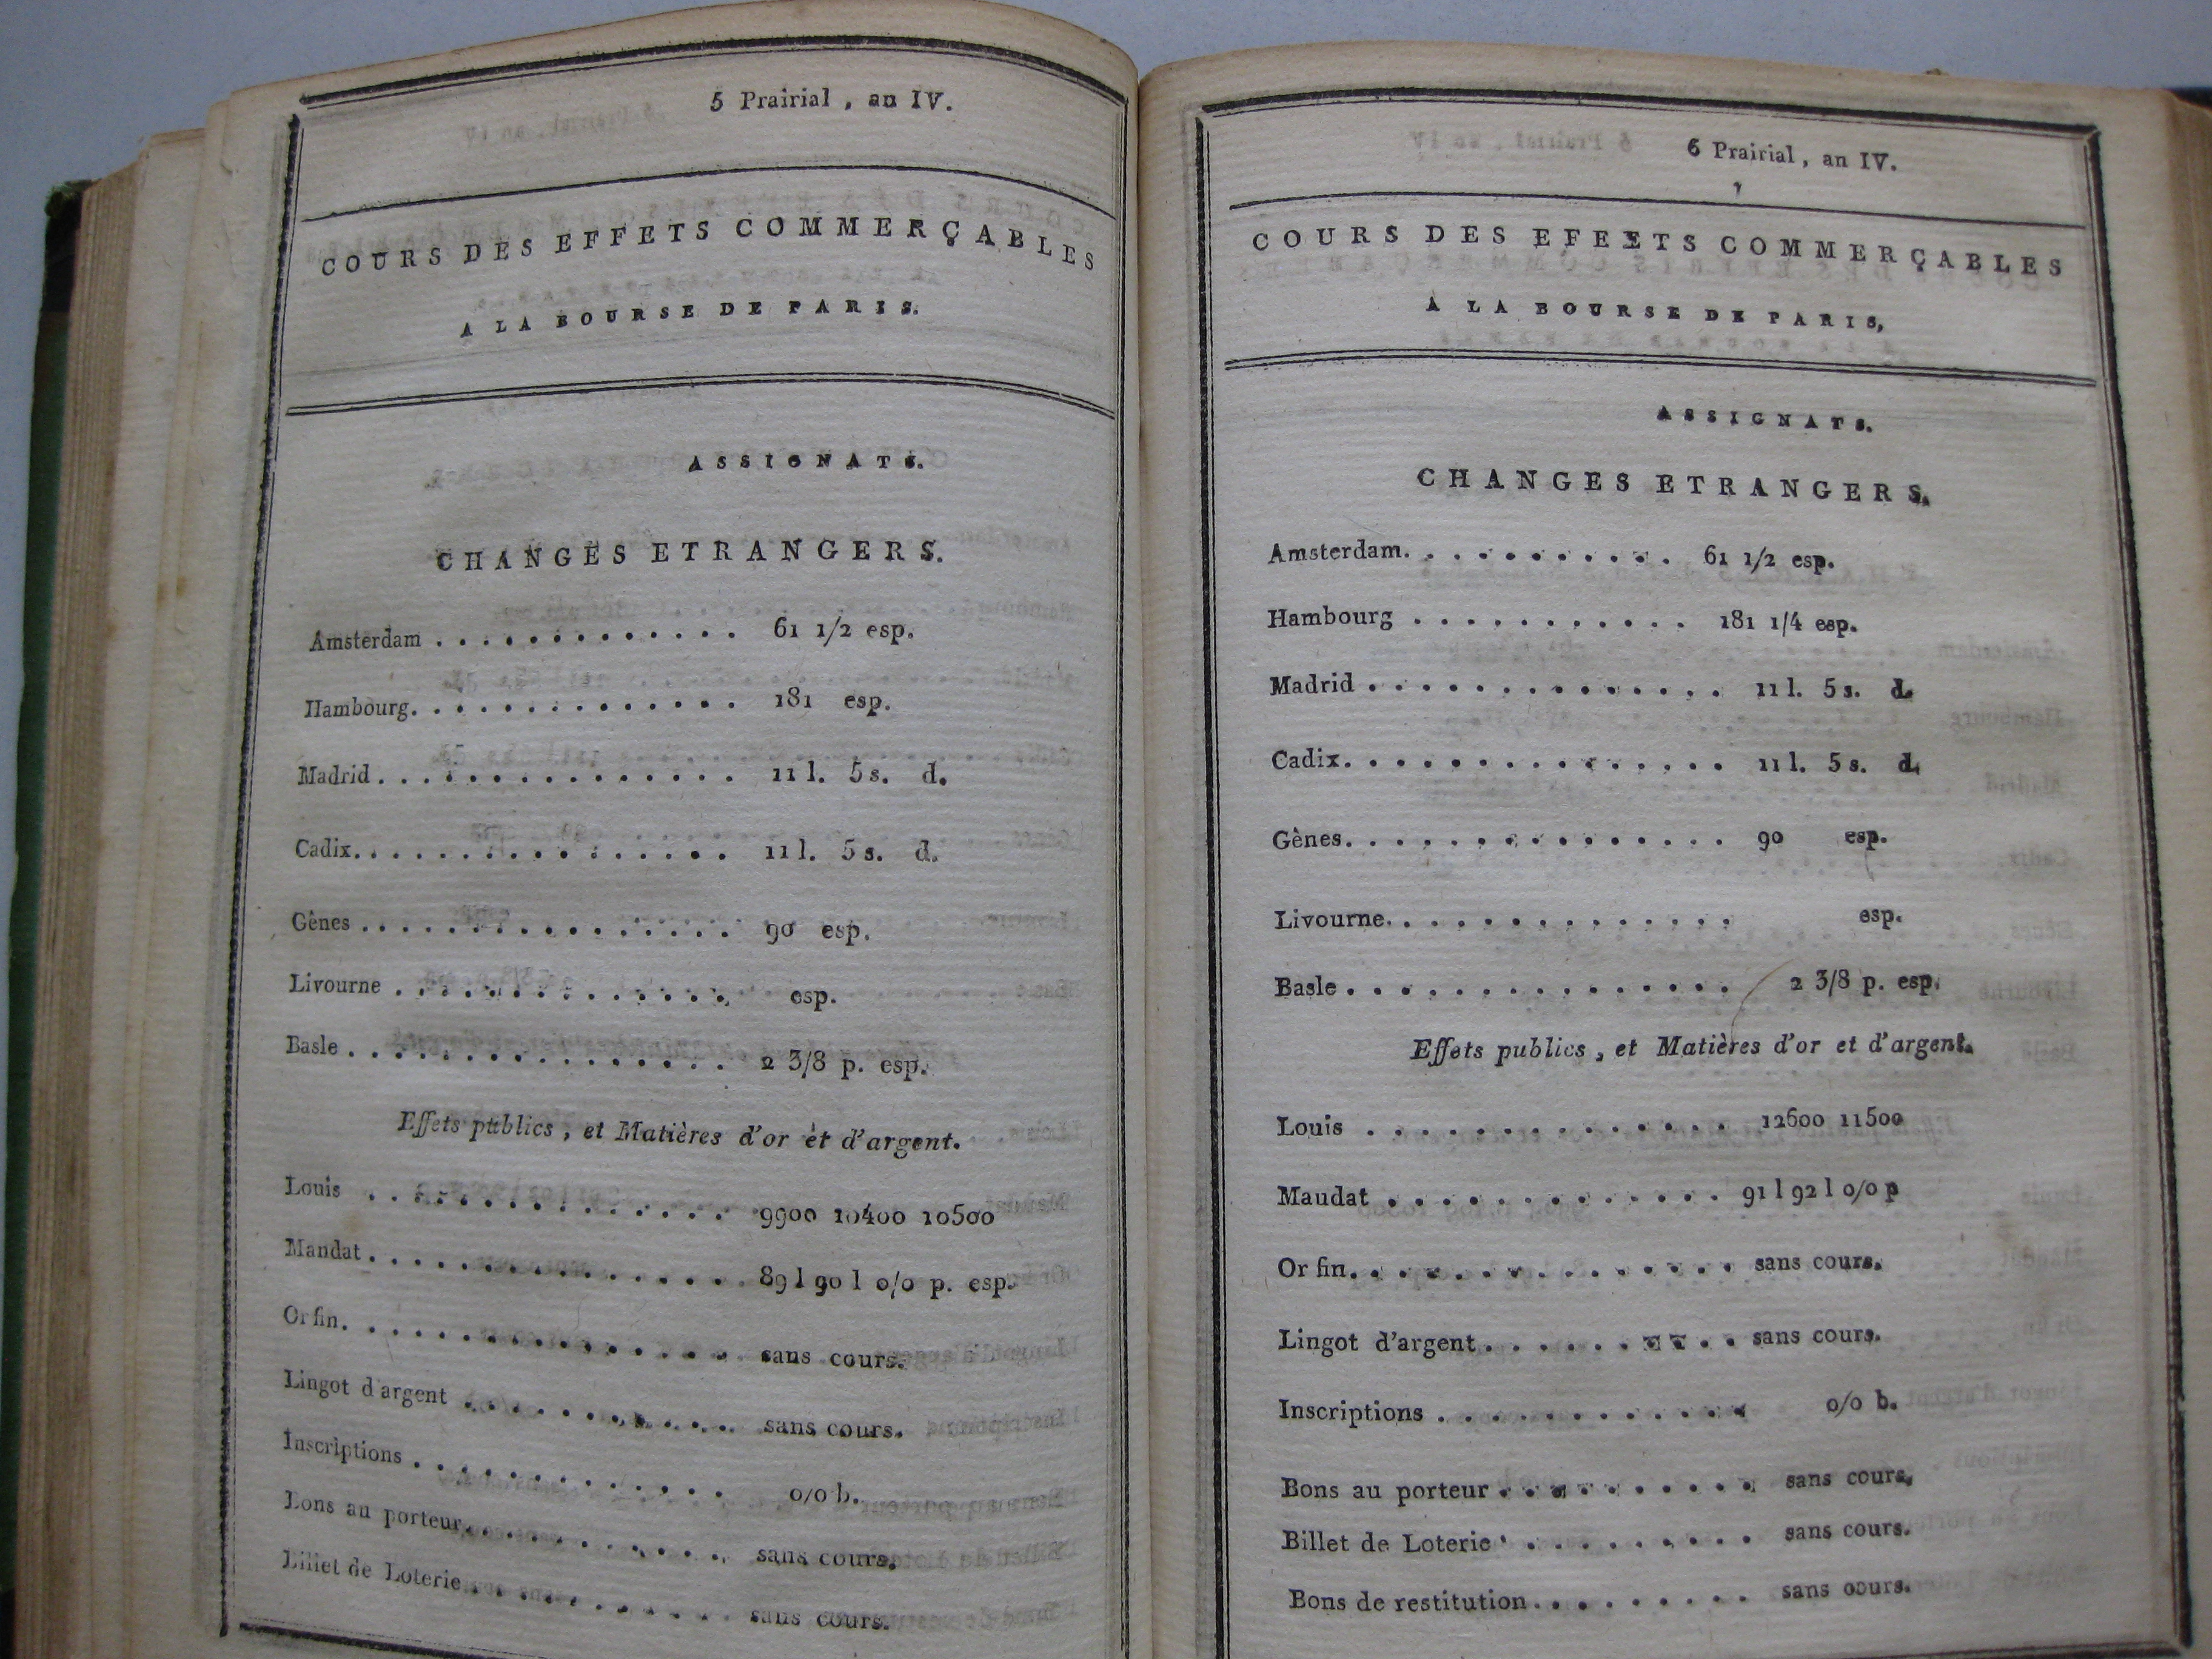 5 Prairial, an IV.
COURS DES EFFETS COMMERÇABLES
A LA BOURSE DE PARIS.
ASSIGNATS.
CHANGES ETRANGERS.
Amsterdam . . . . . . . . . . . . . 61 1/2 esp.
Hambourg. . . . . . . . . . . . . . 181 esp.
Madrid . . . . . . . . . . . . . . . 11 l. 5 s. d.
Cadix. . . . . . . . . . . . . . . . 11 l. 5 s. d.
Gênes . . . . . . . . . . . . . . . 90 esp.
Livourne . . . . . . . . . . . . . esp.
Basle . . . . . . . . . . . . . . . 2 3/8 p. esp.
Effets publics, et Matières d'or et d'argent.
Louis . . . . . . . . . . . . . . 9900 10400 10500
Mandat . . . . . . . . . . . . . . . 89 l 90 l o/o p. esp.
Or fin. . . . . . . . . . . . . . . . sans cours.
Lingot d'argent . . . . . . . . . . . sans cours.
Inscriptions . . . . . . . . . . . . o/o b.
Bons au porteur. . . . . . . . . . . sans cours.
Billet de Loterie . . . . . . . . . . sans cours.
6 Prairial, an IV.
COURS DES EFEETS COMMERÇABLES
A LA BOURSE DE PARIS,
ASSIGNATS.
CHANGES ETRANGERS.
Amsterdam. . . . . . . . . . . 61 1/2 esp.
Hambourg . . . . . . . . . . . 181 1/4 esp.
Madrid . . . . . . . . . . . . . . 11 l. 5 s. d.
Cadix. . . . . . . . . . . . . . . 11 l. 5 s. d.
Gènes. . . . . . . . . . . . . . . 90 esp.
Livourne. . . . . . . . . . . . . . esp.
Basle . . . . . . . . . . . . . . . 2 3/8 p. esp.
Effets publics, et Matières d'or et d'argent.
Louis . . . . . . . . . . . . . . 12600 11500
Maudat . . . . . . . . . . . . . . 91 l 92 l o/o p
Or fin. . . . . . . . . . . . . . . sans cours.
Lingot d'argent . . . . . . . . . . sans cours.
Inscriptions . . . . . . . . . . . . o/o b.
Bons au porteur . . . . . . . . . . sans cours.
Billet de Loterie . . . . . . . . . sans cours.
Bons de restitution . . . . . . . . . sans cours.